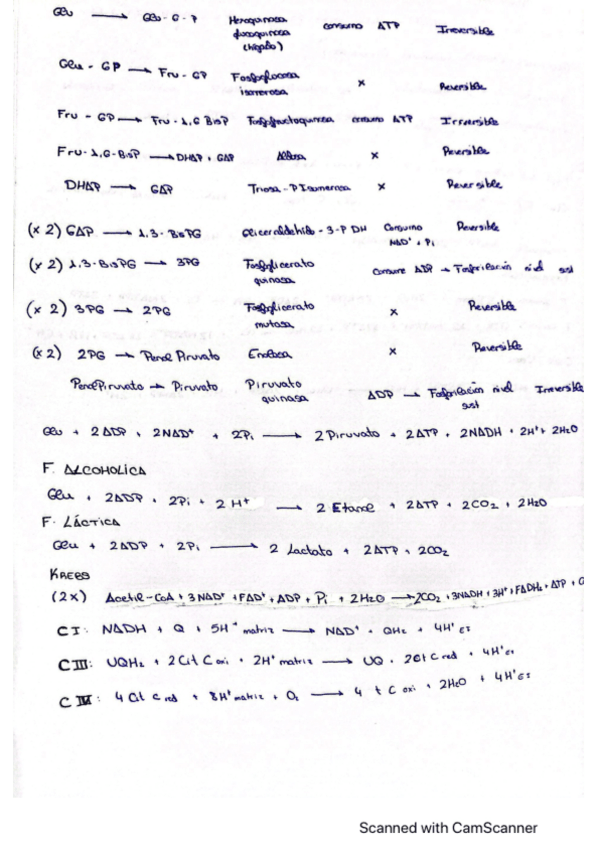 Glu → Glu-6-P Hexoquinasa consumo ATP Irreversible
glucoquinasa
(hígado)
Glu-6P → Fru-6P Fosfoglucosa x Reversible
isomerasa
Fru-6P → Fru-1,6 BisP Fosfofructoquinasa consumo ATP Irreversible
Fru-1,6-BisP → DHAP + GAP Aldolasa x Reversible
DHAP → GAP Triosa-P Isomerasa x Reversible
(x2) GAP → 1,3-BisPG Gliceraldehído-3-P DH Consumo Reversible
NAD⁺ + Pi
(x2) 1,3-BisPG → 3PG Fosfoglicerato Consume ADP → Fosforilación nivel sust
quinasa
(x2) 3PG → 2PG Fosfoglicerato x Reversible
mutasa
(x2) 2PG → Penol Piruvato Enolasa x Reversible
PenolPiruvato → Piruvato Piruvato ADP → Fosforilación nivel Irreversible
quinasa sust
Glu + 2ADP + 2NAD⁺ + 2Pi → 2 Piruvato + 2ATP + 2NADH + 2H⁺ + 2H2O
F. ALCOHOLICA
Glu + 2ADP + 2Pi + 2H⁺ → 2 Etanol + 2ATP + 2CO2 + 2H2O
F. LÁCTICA
Glu + 2ADP + 2Pi → 2 Lactato + 2ATP + 2CO2
KREBS
(2x) Acetil-CoA + 3NAD⁺ + FAD⁺ + ADP + Pi + 2H2O → 2CO2 + 3NADH + 3H⁺ + FADH2 + ATP +
CI: NADH + Q + 5H⁺ matriz → NAD⁺ + QH2 + 4H⁺ EI
CIII: UQH2 + 2Cit C oxi + 2H⁺ matriz → UQ + 2Cit C red + 4H⁺ EI
CIV: 4 Cit C red + 8H⁺ matriz + O2 → 4 t C oxi + 2H2O + 4H⁺ EI
Scanned with CamScanner